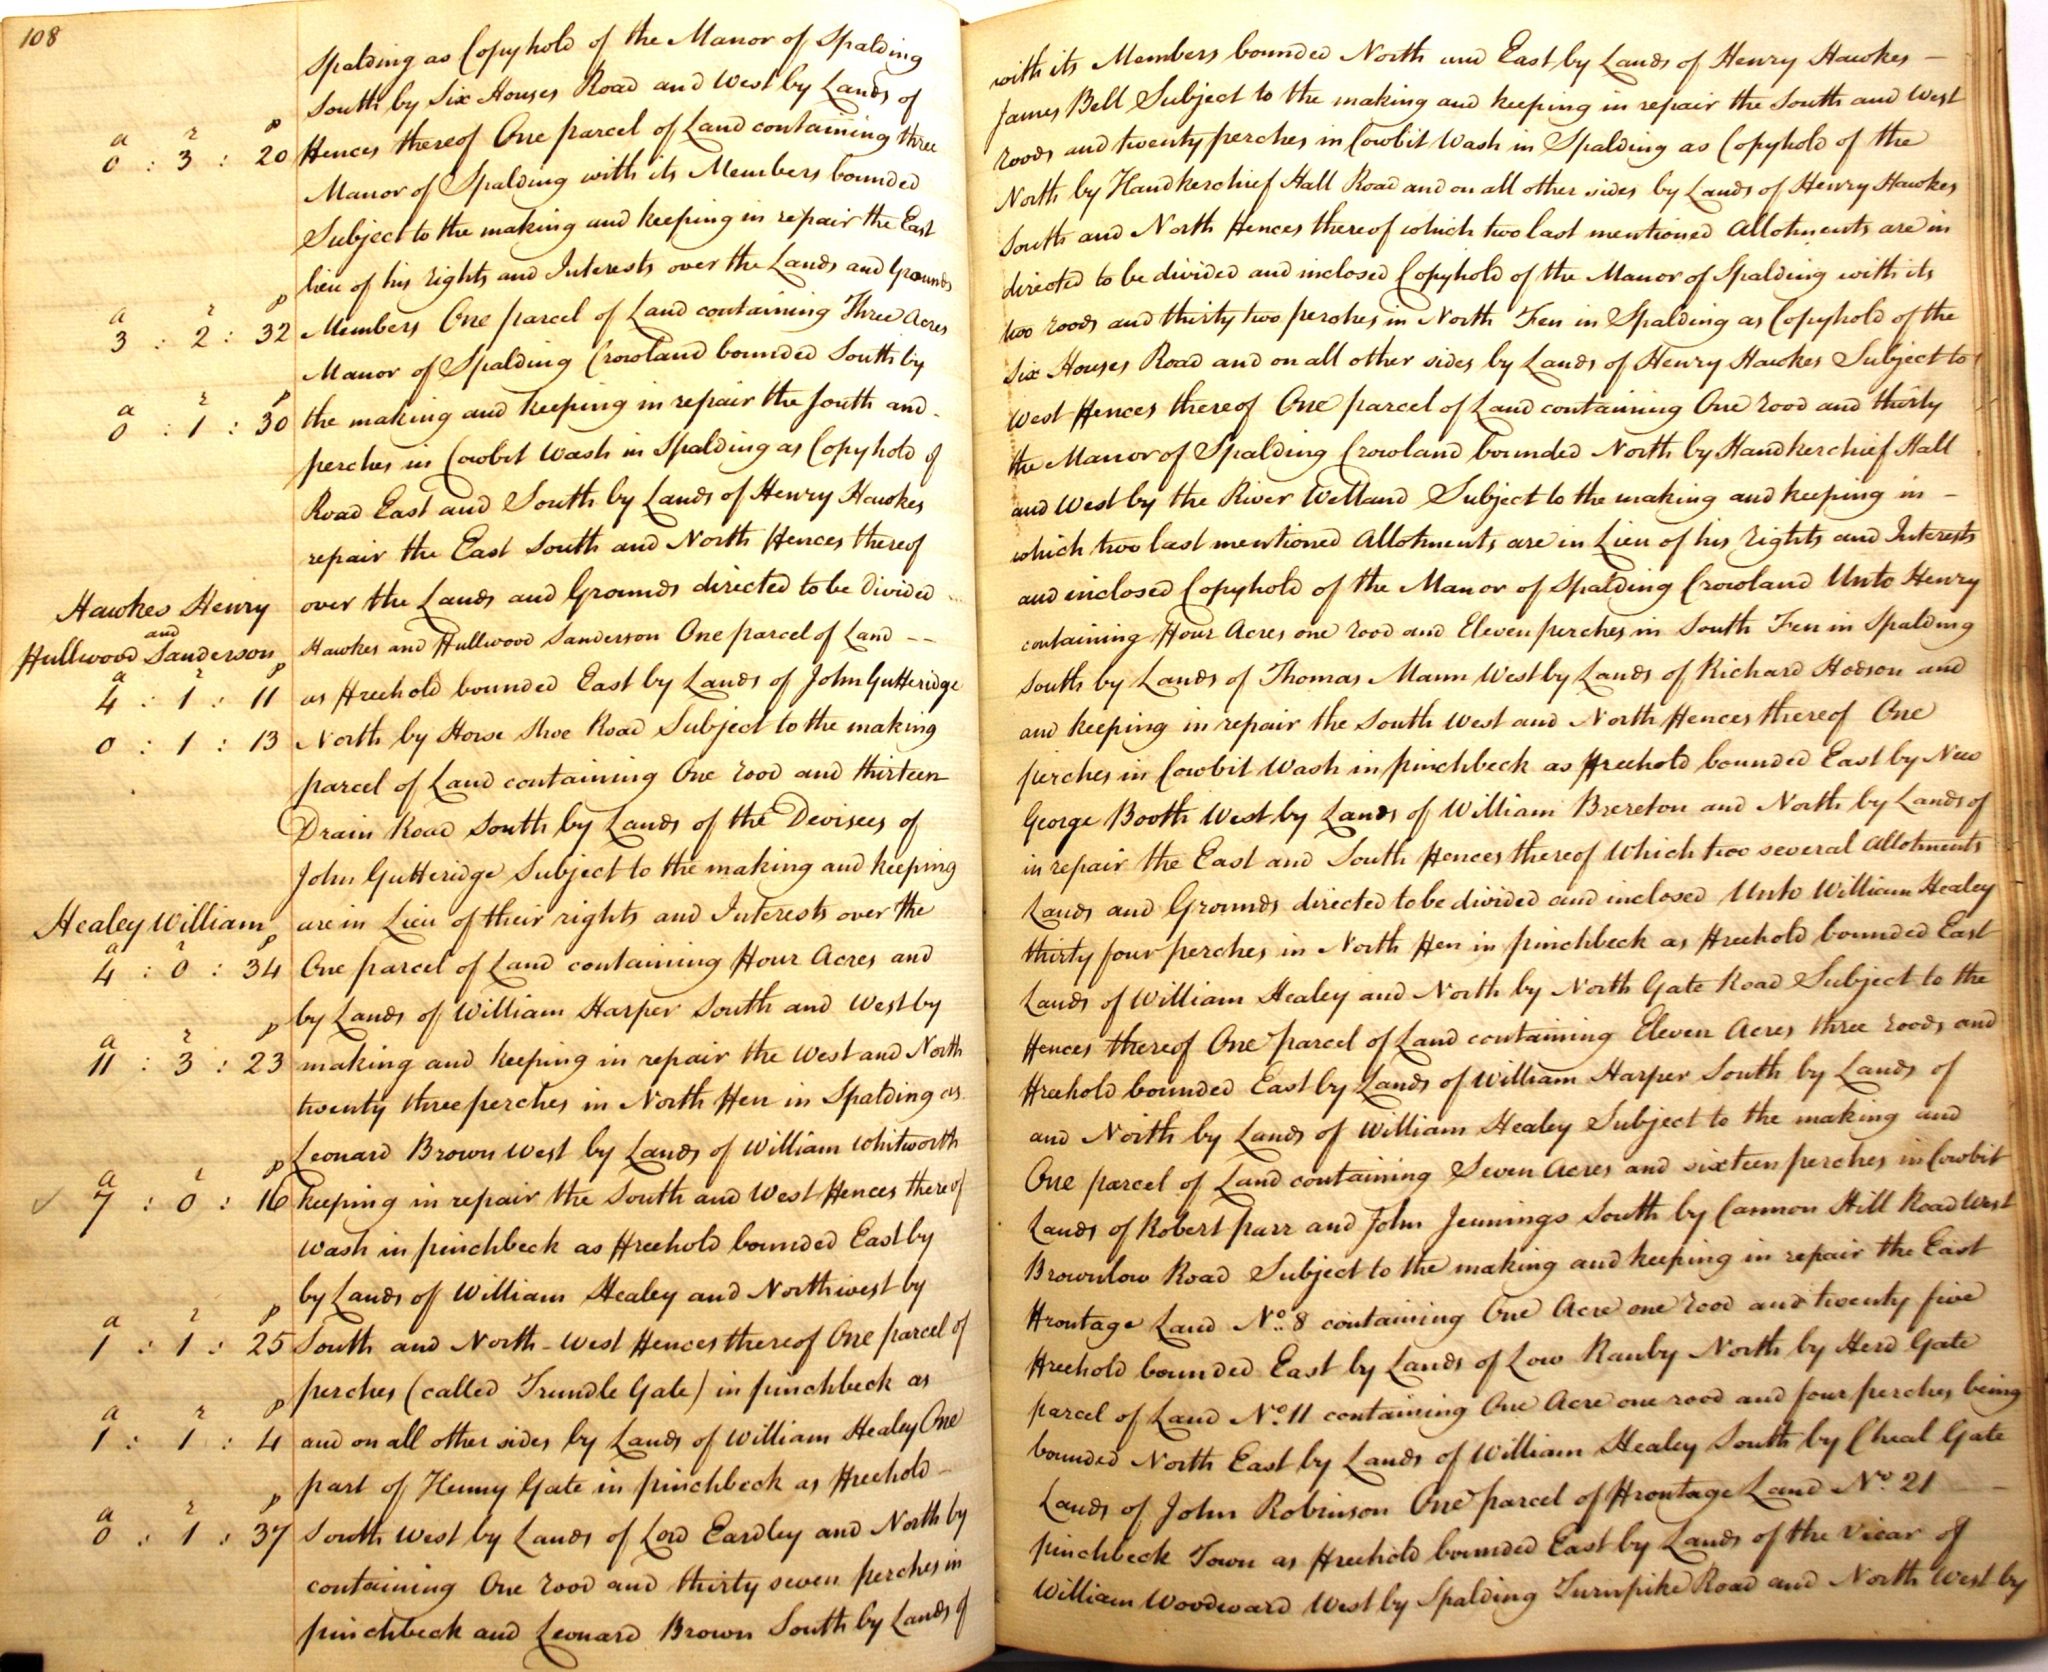 108
Spalding as Copyhold of the Manor of Spalding with its Members bounded North and East by Lands of Henry Hawkes
South by Six Houses Road and West by Lands of James Bell Subject to the making and keeping in repair the South and West
a r p
0 : 3 : 20 Fences thereof One parcel of Land containing three roods and twenty perches in Cowbit Wash in Spalding as Copyhold of the
Manor of Spalding with its Members bounded North by Handkerchief Hall Road and on all other sides by Lands of Henry Hawkes
Subject to the making and keeping in repair the East South and North Fences thereof which two last mentioned Allotments are in
lieu of his rights and Interests over the Lands and Grounds directed to be divided and inclosed Copyhold of the Manor of Spalding with its
a r p
3 : 2 : 32 Members One parcel of Land containing Three Acres two roods and thirty two perches in North Fen in Spalding as Copyhold of the
Manor of Spalding Crowland bounded South by Six Houses Road and on all other sides by Lands of Henry Hawkes Subject to
a r p
0 : 1 : 30 the making and keeping in repair the South and West Fences thereof One parcel of Land containing One rood and thirty
perches in Cowbit Wash in Spalding as Copyhold of the Manor of Spalding Crowland bounded North by Handkerchief Hall
Road East and South by Lands of Henry Hawkes and West by the River Welland Subject to the making and keeping in
repair the East South and North Fences thereof which two last mentioned Allotments are in Lieu of his rights and Interests
over the Lands and Grounds directed to be divided and inclosed Copyhold of the Manor of Spalding Crowland Unto Henry
Hawkes Henry
and
Hullwood Sanderson
Hawkes and Hullwood Sanderson One parcel of Land containing Four Acres one rood and Eleven perches in South Fen in Spalding
a r p
4 : 1 : 11 as Freehold bounded East by Lands of John Gutteridge South by Lands of Thomas Mann West by Lands of Richard Hodson and
0 : 1 : 13 North by Horse Shoe Road Subject to the making and keeping in repair the South West and North Fences thereof One
parcel of Land containing One rood and thirteen perches in Cowbit Wash in pinchbeck as Freehold bounded East by New
Drain Road South by Lands of the Devisees of George Booth West by Lands of William Brereton and North by Lands of
John Gutteridge Subject to the making and keeping in repair the East and South Fences thereof Which two several Allotments
Healey William
are in Lieu of their rights and Interests over the Lands and Grounds directed to be divided and inclosed Unto William Healey
a r p
4 : 0 : 34 One parcel of Land containing Four Acres and thirty four perches in North Fen in pinchbeck as Freehold bounded East
by Lands of William Harper South and West by Lands of William Healey and North by North Gate Road Subject to the
a r p
11 : 3 : 23 making and keeping in repair the West and North Fences thereof One parcel of Land containing Eleven Acres three roods and
twenty three perches in North Fen in Spalding as Freehold bounded East by Lands of William Harper South by Lands of
Leonard Brown West by Lands of William Whitworth and North by Lands of William Healey Subject to the making and
a r p
✓ 7 : 0 : 16 keeping in repair the South and West Fences thereof One parcel of Land containing Seven Acres and sixteen perches in Cowbit
Wash in pinchbeck as Freehold bounded East by Lands of Robert parr and John Jennings South by Cannon Hill Road West
by Lands of William Healey and Northwest by Brownlow Road Subject to the making and keeping in repair the East
a r p
1 : 1 : 25 South and North-West Fences thereof One parcel of Frontage Land No. 8 containing One Acre one rood and twenty five
perches (called Trundle Gate) in pinchbeck as Freehold bounded East by Lands of Low Ranby North by Herd Gate
a r p
1 : 1 : 4 and on all other sides by Lands of William Healey One parcel of Land No. 11 containing One Acre one rood and four perches being
part of Fenny Gate in pinchbeck as Freehold bounded North East by Lands of William Healey South by Cheal Gate
a r p
0 : 1 : 37 South West by Lands of Lord Eardley and North by Lands of John Robinson One parcel of Frontage Land No. 21
containing One rood and thirty seven perches in pinchbeck Town as Freehold bounded East by Lands of the Vicar of
pinchbeck and Leonard Brown South by Lands of William Woodward West by Spalding Turnpike Road and North West by